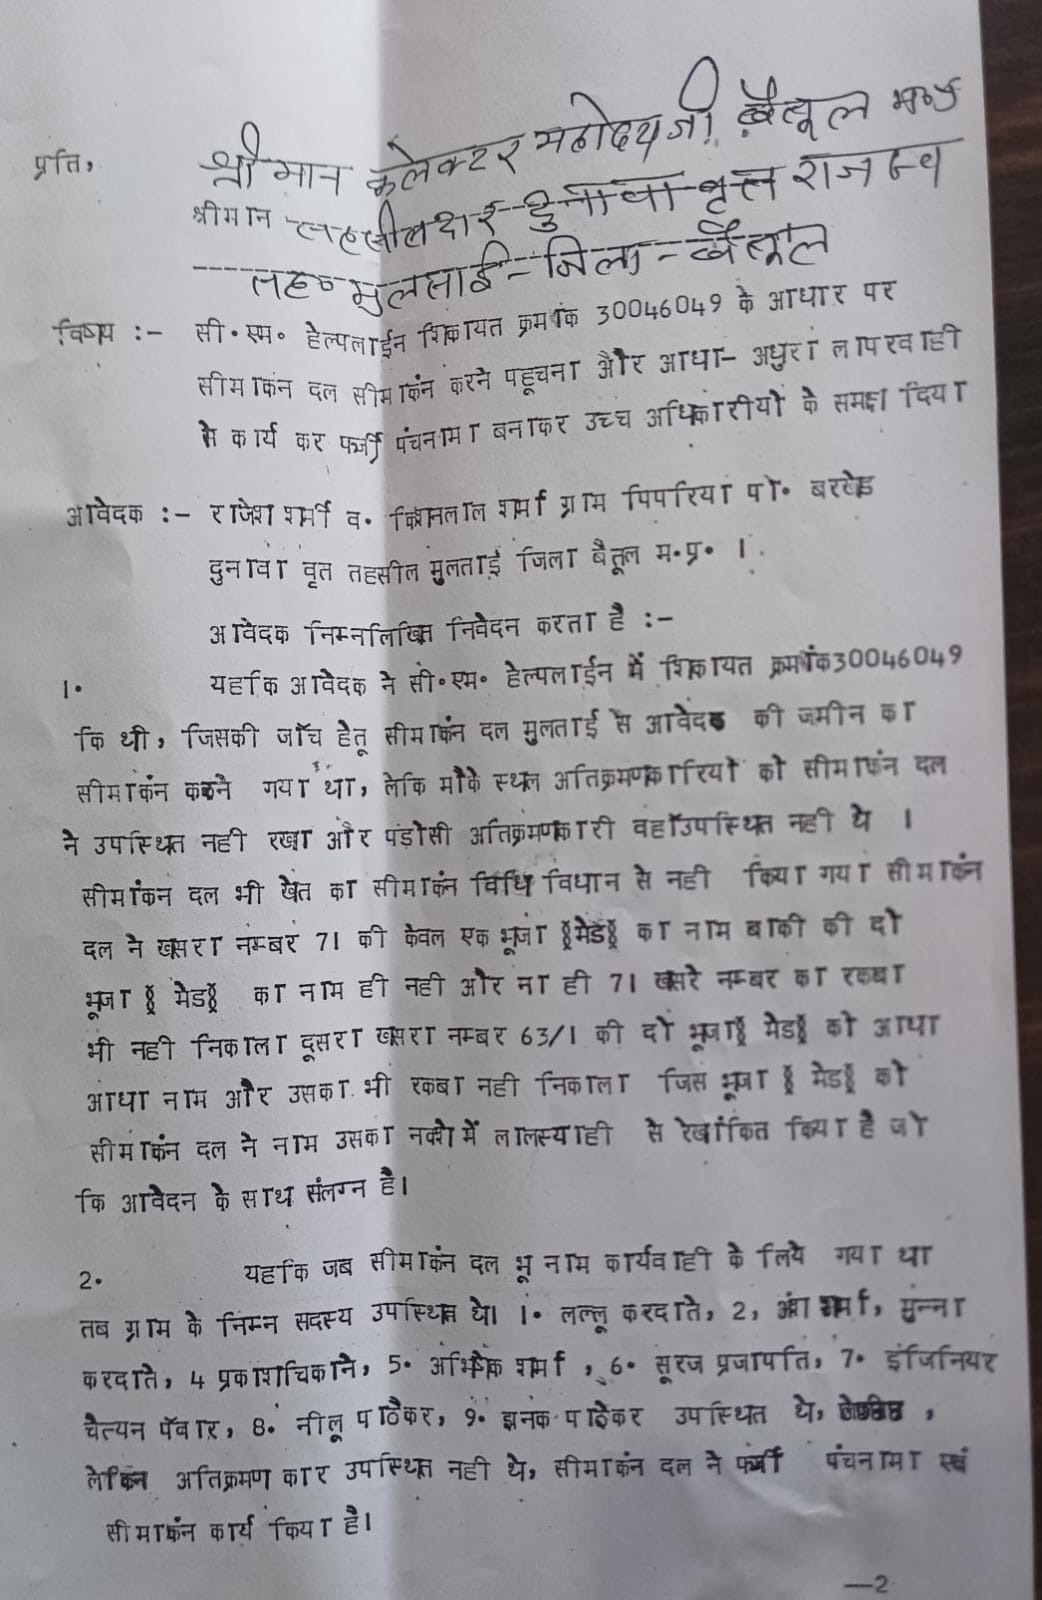 प्रति,
श्रीमान कलेक्टर महोदय जी बैतूल
श्रीमान तहसीलदार दुनावा वृत्त राजस्व
तहo मुलताई - जिला - बैतूल
विषय :- सी.एम. हेल्पलाईन शिकायत क्रमांक 30046049 के आधार पर
सीमाकंन दल सीमाकंन करने पहूचना और आधा- अधुरा लापरवाही
से कार्य कर फर्जी पंचनामा बनाकर उच्च अधिकारीयों के समक्ष दिया
आवेदक :- राजेश शर्मा व. किशनलाल शर्मा ग्राम पिपरिया पो. बरखेड
दुनावा वृत तहसील मुलताई जिला बैतूल म.प्र. ।
आवेदक निम्नलिखित निवेदन करता है :-
1. यहकि आवेदक ने सी.एम. हेल्पलाईन में शिकायत क्रमांक30046049
कि थी, जिसकी जॉच हेतू सीमाकंन दल मुलताई से आवेदक की जमीन का
सीमाकंन करने गया था, लेकि मौके स्थल अतिक्रमणकारियों को सीमाकंन दल
ने उपस्थित नही रखा और पंडोसी अतिक्रमणकारी वहॉउपस्थित नही थे ।
सीमांकन दल भी खेत का सीमाकंन विधि विधान से नही किया गया सीमाकंन
दल ने खसरा नम्बर 71 की केवल एक भूजा मेड का नाम बाकी की दो
भूजा मेड का नाम ही नही और ना ही 71 खसरे नम्बर का रकबा
भी नही निकाला दूसरा खसरा नम्बर 63/1 की दो भूजा मेड को आधा
आधा नाम और उसका भी रकबा नही निकाला जिस भूजा मेड को
सीमाकंन दल ने नाम उसका नक्शे में लालस्याही से रेखांकित किया है जो
कि आवेदन के साथ संलग्न है।
2. यहकि जब सीमाकंन दल भू नाम कार्यवाही के लिये गया था
तब ग्राम के निम्न सदस्य उपस्थित थे। 1. लल्लू करदाते, 2, शर्मा, मुन्ना
करदाते, 4 प्रकाशचिकाने, 5. अभिषेक शर्मा , 6. सूरज प्रजापति, 7. इंजिनियर
चैत्यन पॅवार, 8. नीलू पाठेकर, 9. झनक पाठेकर उपस्थित थे, ,
लेकिन अतिक्रमण कार उपस्थित नही थे, सीमाकंन दल ने फर्जी पंचनामा एवं
सीमाकंन कार्य किया है।
—2